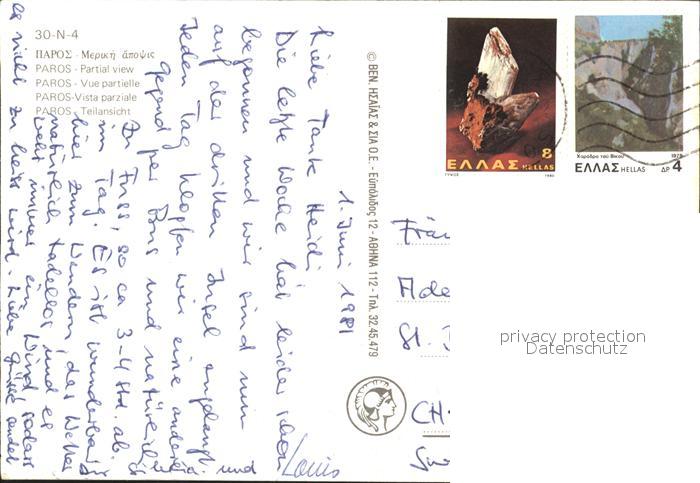 30-N-4
ΠΑΡΟΣ - Μερική ἄποψις
PAROS - Partial view
PAROS - Vue partielle
PAROS-Vista parziale
PAROS - Teilansicht
1. Juni 1981
Liebe Tante Heidi
Die letzte Woche hat leider schon
begonnen und wir sind nun
auf der dritten Insel angelangt.
Jeden Tag klopfen wir eine andere
Gegend per Bus und natürlich
zu Fuss, so ca 3-4 Std. ab
im Tag. Es ist wunderbar
hier zum Wandern, das Wetter
natürlich tadellos und es
weht immer ein Wind sodass
es nicht zu heiss wird. Liebe Grüsse sendet
und
Louis
© BEN. ΗΣΑΪΑΣ & ΣΙΑ Ο.Ε. - Εὐπόλιδος 12 - ΑΘΗΝΑ 112 - Τηλ. 32.45.479
8
ΕΛΛΑΣ HELLAS
1980
Χαράδρα τοῦ Βίκου 1979
ΕΛΛΑΣ HELLAS ΔΡ 4
St.
CH-
privacy protection
Datenschutz